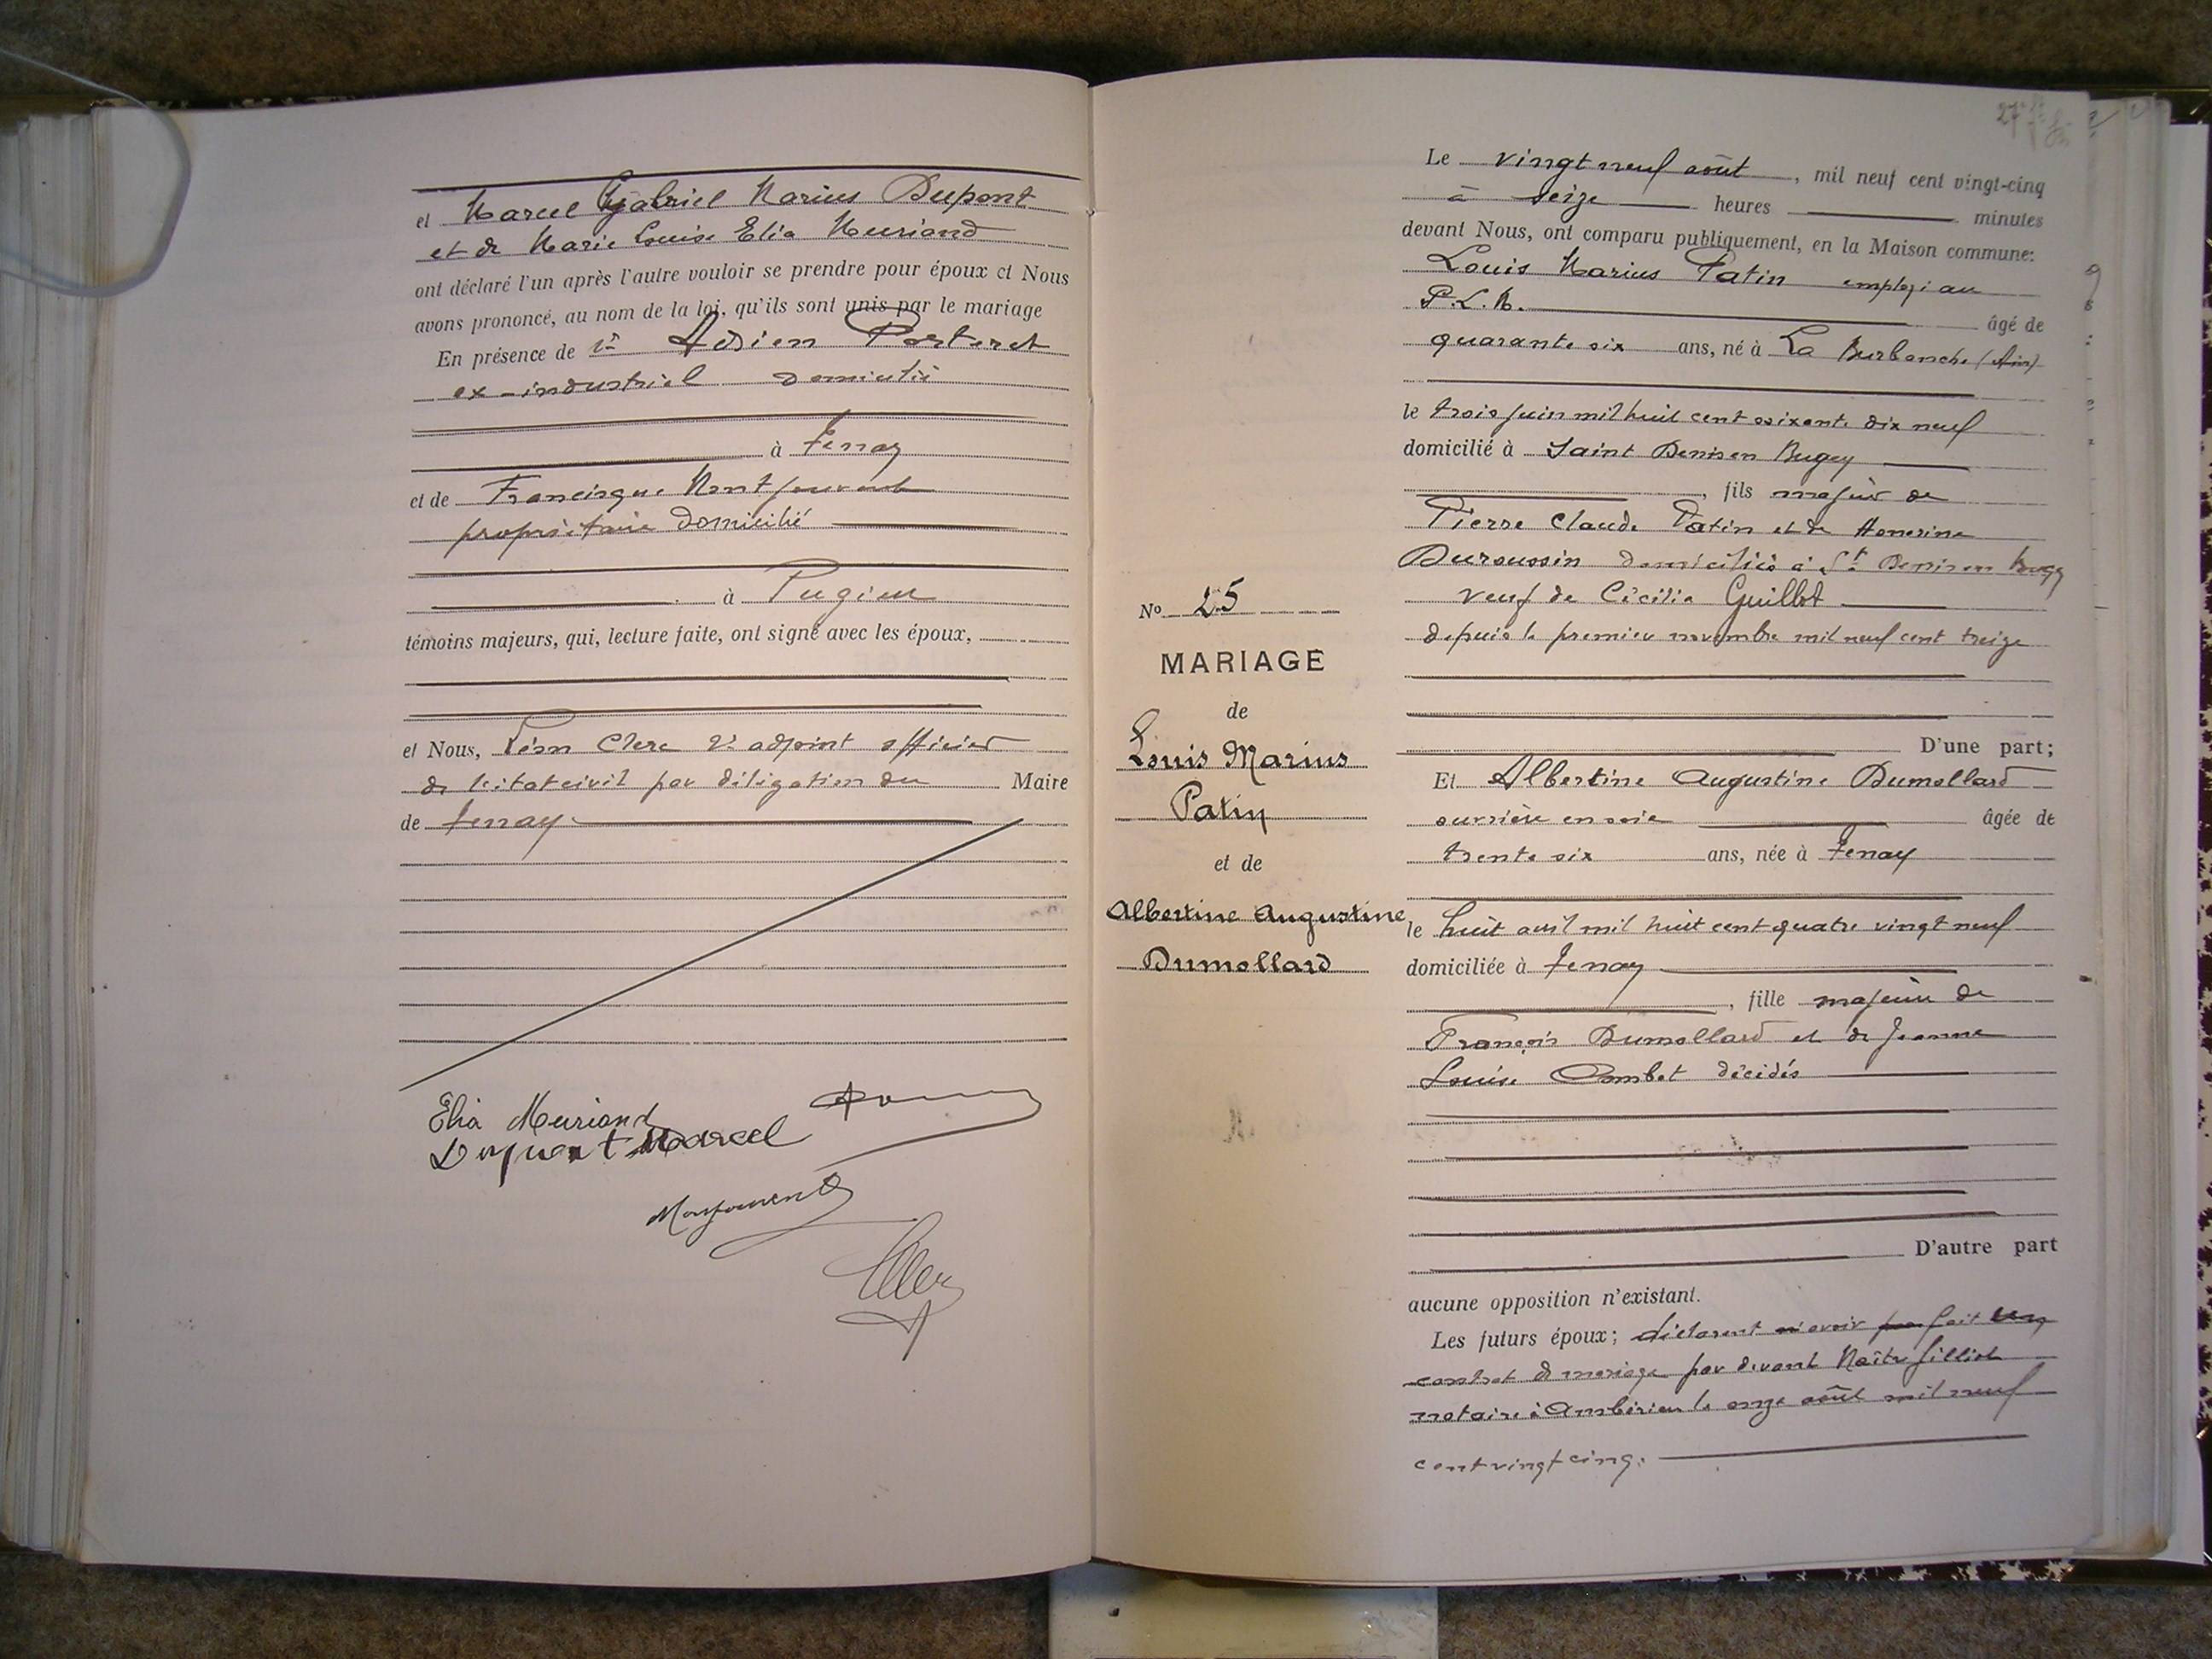 et Marcel Gabriel Marius Dupont
et de Marie Louise Elia Meuriand
ont déclaré l'un après l'autre vouloir se prendre pour époux et Nous
avons prononcé, au nom de la loi, qu'ils sont unis par le mariage
En présence de Adrien Porteret
ex-industriel domicilié
à Tenay
et de Francisque Montjouvent
propriétaire domicilié
à Pugieu
témoins majeurs, qui, lecture faite, ont signé avec les époux,
et Nous, Léon Clerc 2e adjoint officier
de l'état civil par délégation du Maire
de Tenay.
Elia Meuriand
Dupont Marcel
Monjouvent
Clerc
27
Le vingt neuf août, mil neuf cent vingt-cinq
à seize heures minutes
devant Nous, ont comparu publiquement, en la Maison commune:
Louis Marius Patin employé au
P.L.M. âgé de
quarante six ans, né à La Burbanche (Ain)
le trois juin mil huit cent soixante dix neuf
domicilié à Saint Denis en Bugey
, fils majeur de
Pierre Claude Patin et de Honorine
Duroussin domiciliés à St Denis en Bugey
veuf de Cécilia Guillot
depuis le premier novembre mil neuf cent treize
D'une part;
No 25
MARIAGE
de
Louis Marius
Patin
et de
Albertine Augustine
Dumollard
Et Albertine Augustine Dumollard
ouvrière en soie âgée de
trente six ans, née à Tenay
le huit avril mil huit cent quatre vingt neuf
domiciliée à Tenay
, fille majeure de
François Dumollard et de Jeanne
Louise Combet décédés
D'autre part
aucune opposition n'existant.
Les futurs époux; déclarent avoir fait un
contrat de mariage par devant Maître
notaire à Ambérieu le onze août mil neuf
cent vingt cinq.